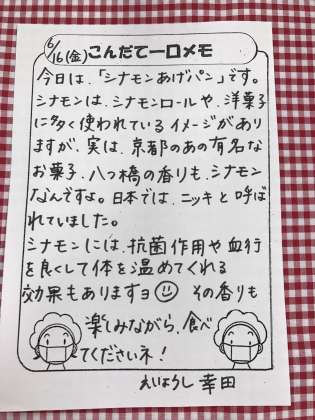 6/16(金)こんだて一口メモ
今日は、「シナモンあげパン」です。
シナモンは、シナモンロールや、洋菓子
に多く使われているイメージがあり
ますが、実は、京都のあの有名な
お菓子、八つ橋の香りも、シナモン
なんですよ。日本では、ニッキと呼ば
れていました。
シナモンには、抗菌作用や血行
を良くして体を温めてくれる
効果もありますヨ☺ その香りも
楽しみながら、食べ
てくださいネ!
えいようし 幸田